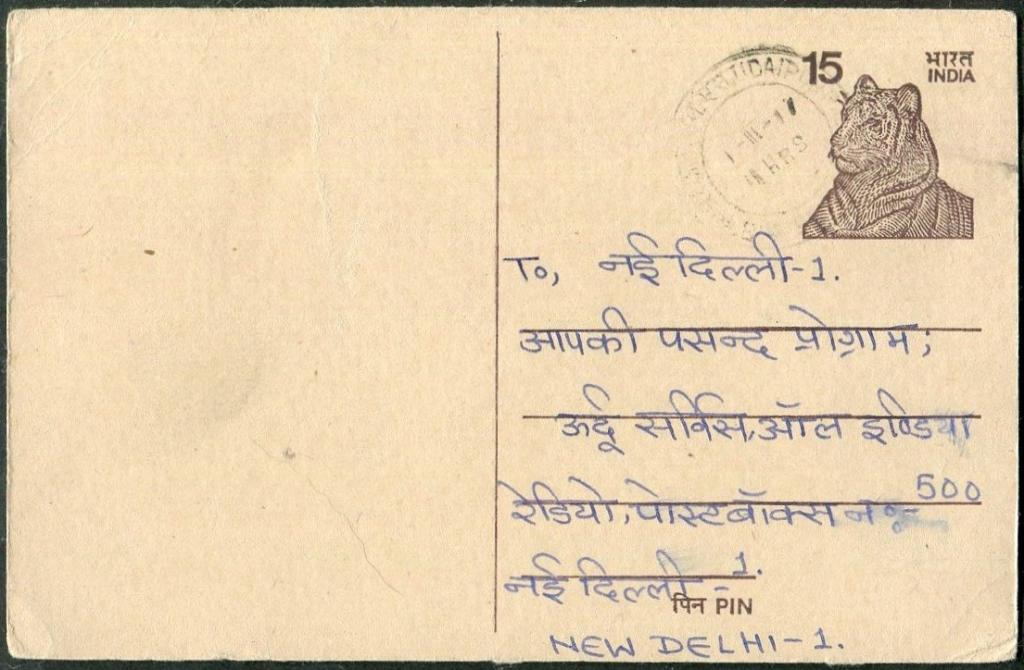 15
भारत
INDIA
HRS
To, नई दिल्ली-1.
आपकी पसन्द प्रोग्राम;
ऊर्दू सर्विस, ऑल इण्डिया
रेडियो, पोस्ट बॉक्स नं॰- 500
नई दिल्ली - 1.
पिन PIN
NEW DELHI-1.